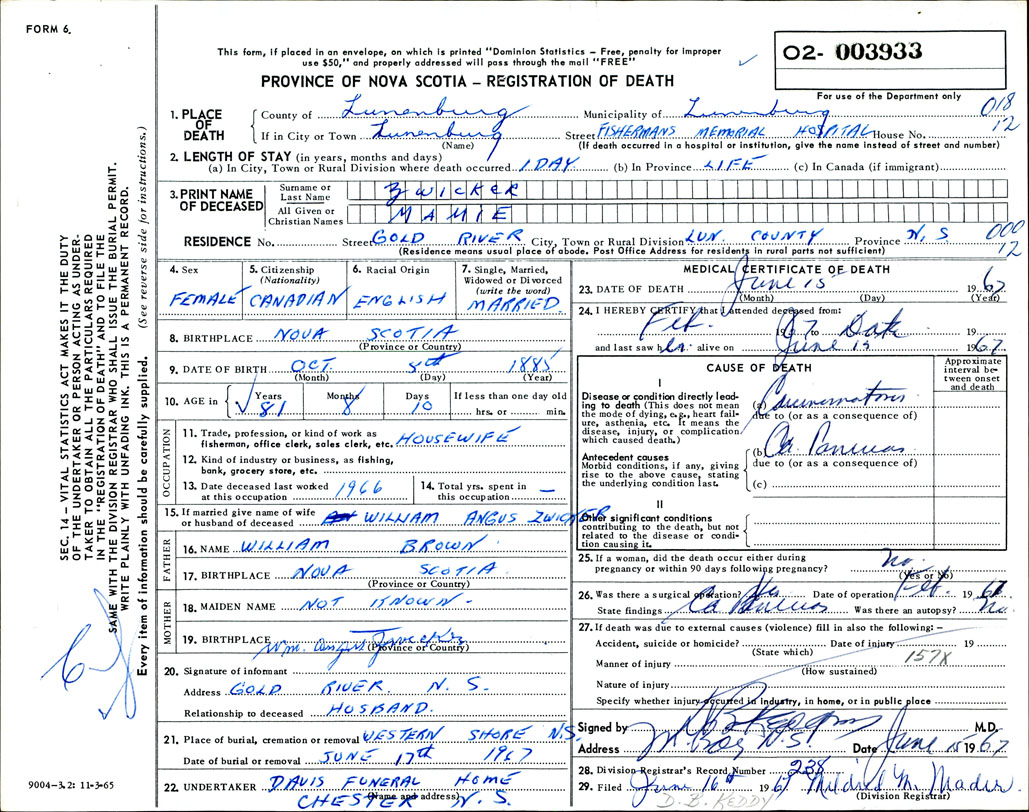 FORM 6.
This form, if placed in an envelope, on which is printed "Dominion Statistics – Free, penalty for improper
use $50," and properly addressed will pass through the mail "FREE"
O2- 003933
For use of the Department only
PROVINCE OF NOVA SCOTIA – REGISTRATION OF DEATH
018
12
1. PLACE OF DEATH County of Lunenburg Municipality of Lunenburg
If in City or Town Lunenburg Street FISHERMANS MEMORIAL HOSPITAL House No.
(Name) (If death occurred in a hospital or institution, give the name instead of street and number)
2. LENGTH OF STAY (in years, months and days)
(a) In City, Town or Rural Division where death occurred 1 DAY (b) In Province LIFE (c) In Canada (if immigrant)
3. PRINT NAME OF DECEASED
Surname or Last Name ZWICKER
All Given or Christian Names MAMIE
RESIDENCE No. Street GOLD RIVER City, Town or Rural Division LUN. COUNTY Province N.S.
000
12
(Residence means usual place of abode. Post Office Address for residents in rural parts not sufficient)
4. Sex FEMALE
5. Citizenship (Nationality) CANADIAN
6. Racial Origin ENGLISH
7. Single, Married, Widowed or Divorced (write the word) MARRIED
8. BIRTHPLACE NOVA SCOTIA
(Province or Country)
9. DATE OF BIRTH OCT. 8th 1885
(Month) (Day) (Year)
10. AGE in Years 81 Months 8 Days 10 If less than one day old
hrs. or min.
OCCUPATION
11. Trade, profession, or kind of work as
fisherman, office clerk, sales clerk, etc. HOUSEWIFE
12. Kind of industry or business, as fishing,
bank, grocery store, etc.
13. Date deceased last worked at this occupation 1966
14. Total yrs. spent in this occupation —
15. If married give name of wife
or husband of deceased WILLIAM ANGUS ZWICKER
FATHER
16. NAME WILLIAM BROWN
17. BIRTHPLACE NOVA SCOTIA
(Province or Country)
MOTHER
18. MAIDEN NAME NOT KNOWN
19. BIRTHPLACE
(Province or Country)
Wm. Angus
20. Signature of informant
Address GOLD RIVER N.S.
Relationship to deceased HUSBAND.
21. Place of burial, cremation or removal WESTERN SHORE N.S.
Date of burial or removal JUNE 17th 1967
22. UNDERTAKER DAVIS FUNERAL HOME
(Name and address) CHESTER N.S.
MEDICAL CERTIFICATE OF DEATH
23. DATE OF DEATH June 15 1967
(Month) (Day) (Year)
24. I HEREBY CERTIFY that I attended deceased from:
Feb. 1967 to Date 19
and last saw her alive on June 15 1967
CAUSE OF DEATH
Approximate interval between onset and death
I
Disease or condition directly leading to death (This does not mean the mode of dying, e.g., heart failure, asthenia, etc. It means the disease, injury, or complication which caused death.)
(a) Carcinomatosis
due to (or as a consequence of)
Antecedent causes
Morbid conditions, if any, giving rise to the above cause, stating the underlying condition last.
(b) Ca Pancreas
due to (or as a consequence of)
(c)
II
Other significant conditions
contributing to the death, but not related to the disease or condition causing it.
25. If a woman, did the death occur either during
pregnancy or within 90 days following pregnancy? No
(Yes or No)
26. Was there a surgical operation? Yes Date of operation Feb. 1967
State findings Ca Pancreas Was there an autopsy? No.
27. If death was due to external causes (violence) fill in also the following: –
Accident, suicide or homicide? Date of injury 19
(State which)
157X
Manner of injury
(How sustained)
Nature of injury
Specify whether injury occurred in industry, in home, or in public place
Signed by M.D.
Address N.S. Date June 15 1967
28. Division Registrar's Record Number 238
29. Filed June 16th 1967 Mildred M. Mader
(Division Registrar)
D. B. KEDDY
SEC. 14 – VITAL STATISTICS ACT MAKES IT THE DUTY
OF THE UNDERTAKER OR PERSON ACTING AS UNDER-
TAKER TO OBTAIN ALL THE PARTICULARS REQUIRED
IN THE "REGISTRATION OF DEATH" AND TO FILE THE
SAME WITH THE DIVISION REGISTRAR WHO SHALL ISSUE THE BURIAL PERMIT.
WRITE PLAINLY WITH UNFADING INK. THIS IS A PERMANENT RECORD.
Every item of information should be carefully supplied. (See reverse side for instructions.)
9004-3.2: 11-3-65